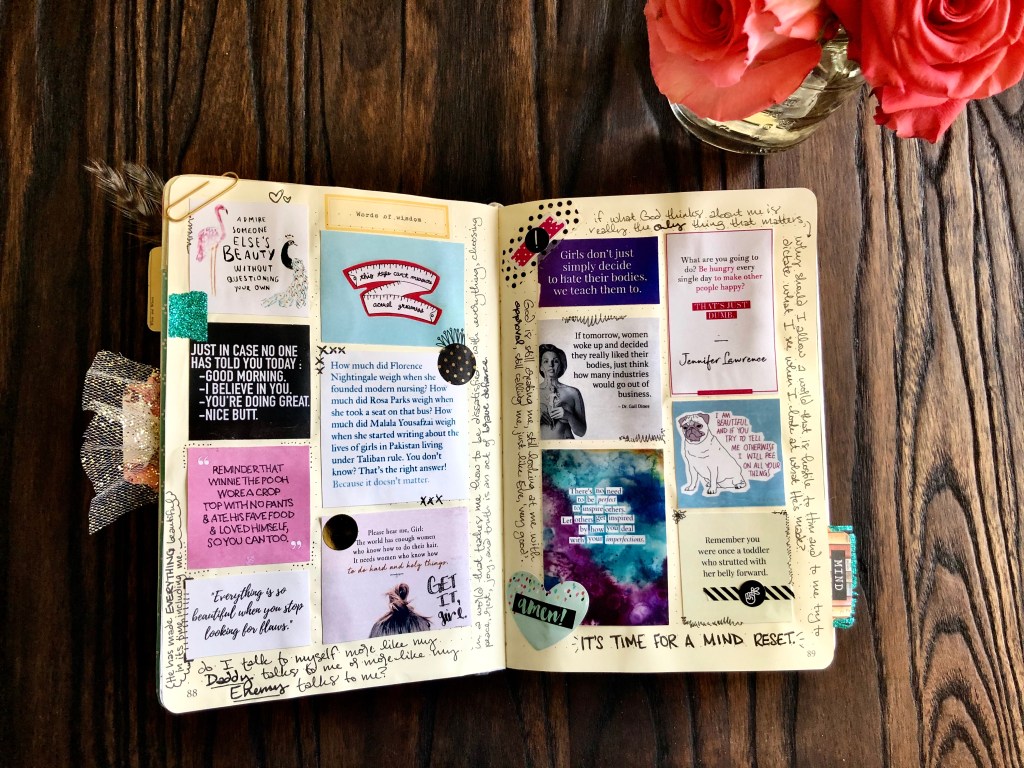 Words of wisdom
ADMIRE
SOMEONE
ELSE'S
BEAUTY
WITHOUT
QUESTIONING
YOUR OWN
JUST IN CASE NO ONE
HAS TOLD YOU TODAY :
-GOOD MORNING.
-I BELIEVE IN YOU.
-YOU'RE DOING GREAT.
-NICE BUTT.
“
REMINDER THAT
WINNIE THE POOH
WORE A CROP
TOP WITH NO PANTS
& ATE HIS FAVE FOOD
& LOVED HIMSELF,
SO YOU CAN TOO.
”
"Everything is so
beautiful when you stop
looking for flaws."
this tape can't measure
actual greatness
xxx
How much did Florence
Nightingale weigh when she
founded modern nursing? How
much did Rosa Parks weigh when
she took a seat on that bus? How
much did Malala Yousafzai weigh
when she started writing about the
lives of girls in Pakistan living
under Taliban rule. You don't
know? That's the right answer!
Because it doesn't matter.
xxx
Please hear me, Girl:
The world has enough women
who know how to do their hair.
It needs women who know how
to do hard and holy things.
GET
IT,
girl
He has made EVERYTHING beautiful
in its time, including me.
do I talk to myself more like my
Daddy talks to me or more like my
Enemy talks to me?
88
in a world that teaches me how to be dissatisfied with everything, choosing
peace, rest, joy and truth is an act of brave defiance
!
if what God thinks about me is
really the only thing that matters,
why should I allow a world that is hostile to Him and to me try to
dictate what I see when I look at what He's made?
God is still creating me, still looking at me with
approval, still calling me, just like Eve, very good.
Girls don't just
simply decide
to hate their bodies.
we teach them to.
If tomorrow, women
woke up and decided
they really liked their
bodies, just think
how many industries
would go out of
business.
- Dr. Gail Dines
There's no need
to be perfect
to inspire others.
Let others get inspired
by how you deal
with your imperfections.
amen!
What are you going to
do? Be hungry every
single day to make other
people happy?
THAT'S JUST
DUMB.
Jennifer Lawrence
I AM
BEAUTIFUL
AND IF YOU
TRY TO TELL
ME OTHERWISE
I WILL PEE
ON ALL YOUR
THINGS!
Remember you
were once a toddler
who strutted with
her belly forward.
IT'S TIME FOR A MIND RESET.
89
MIND